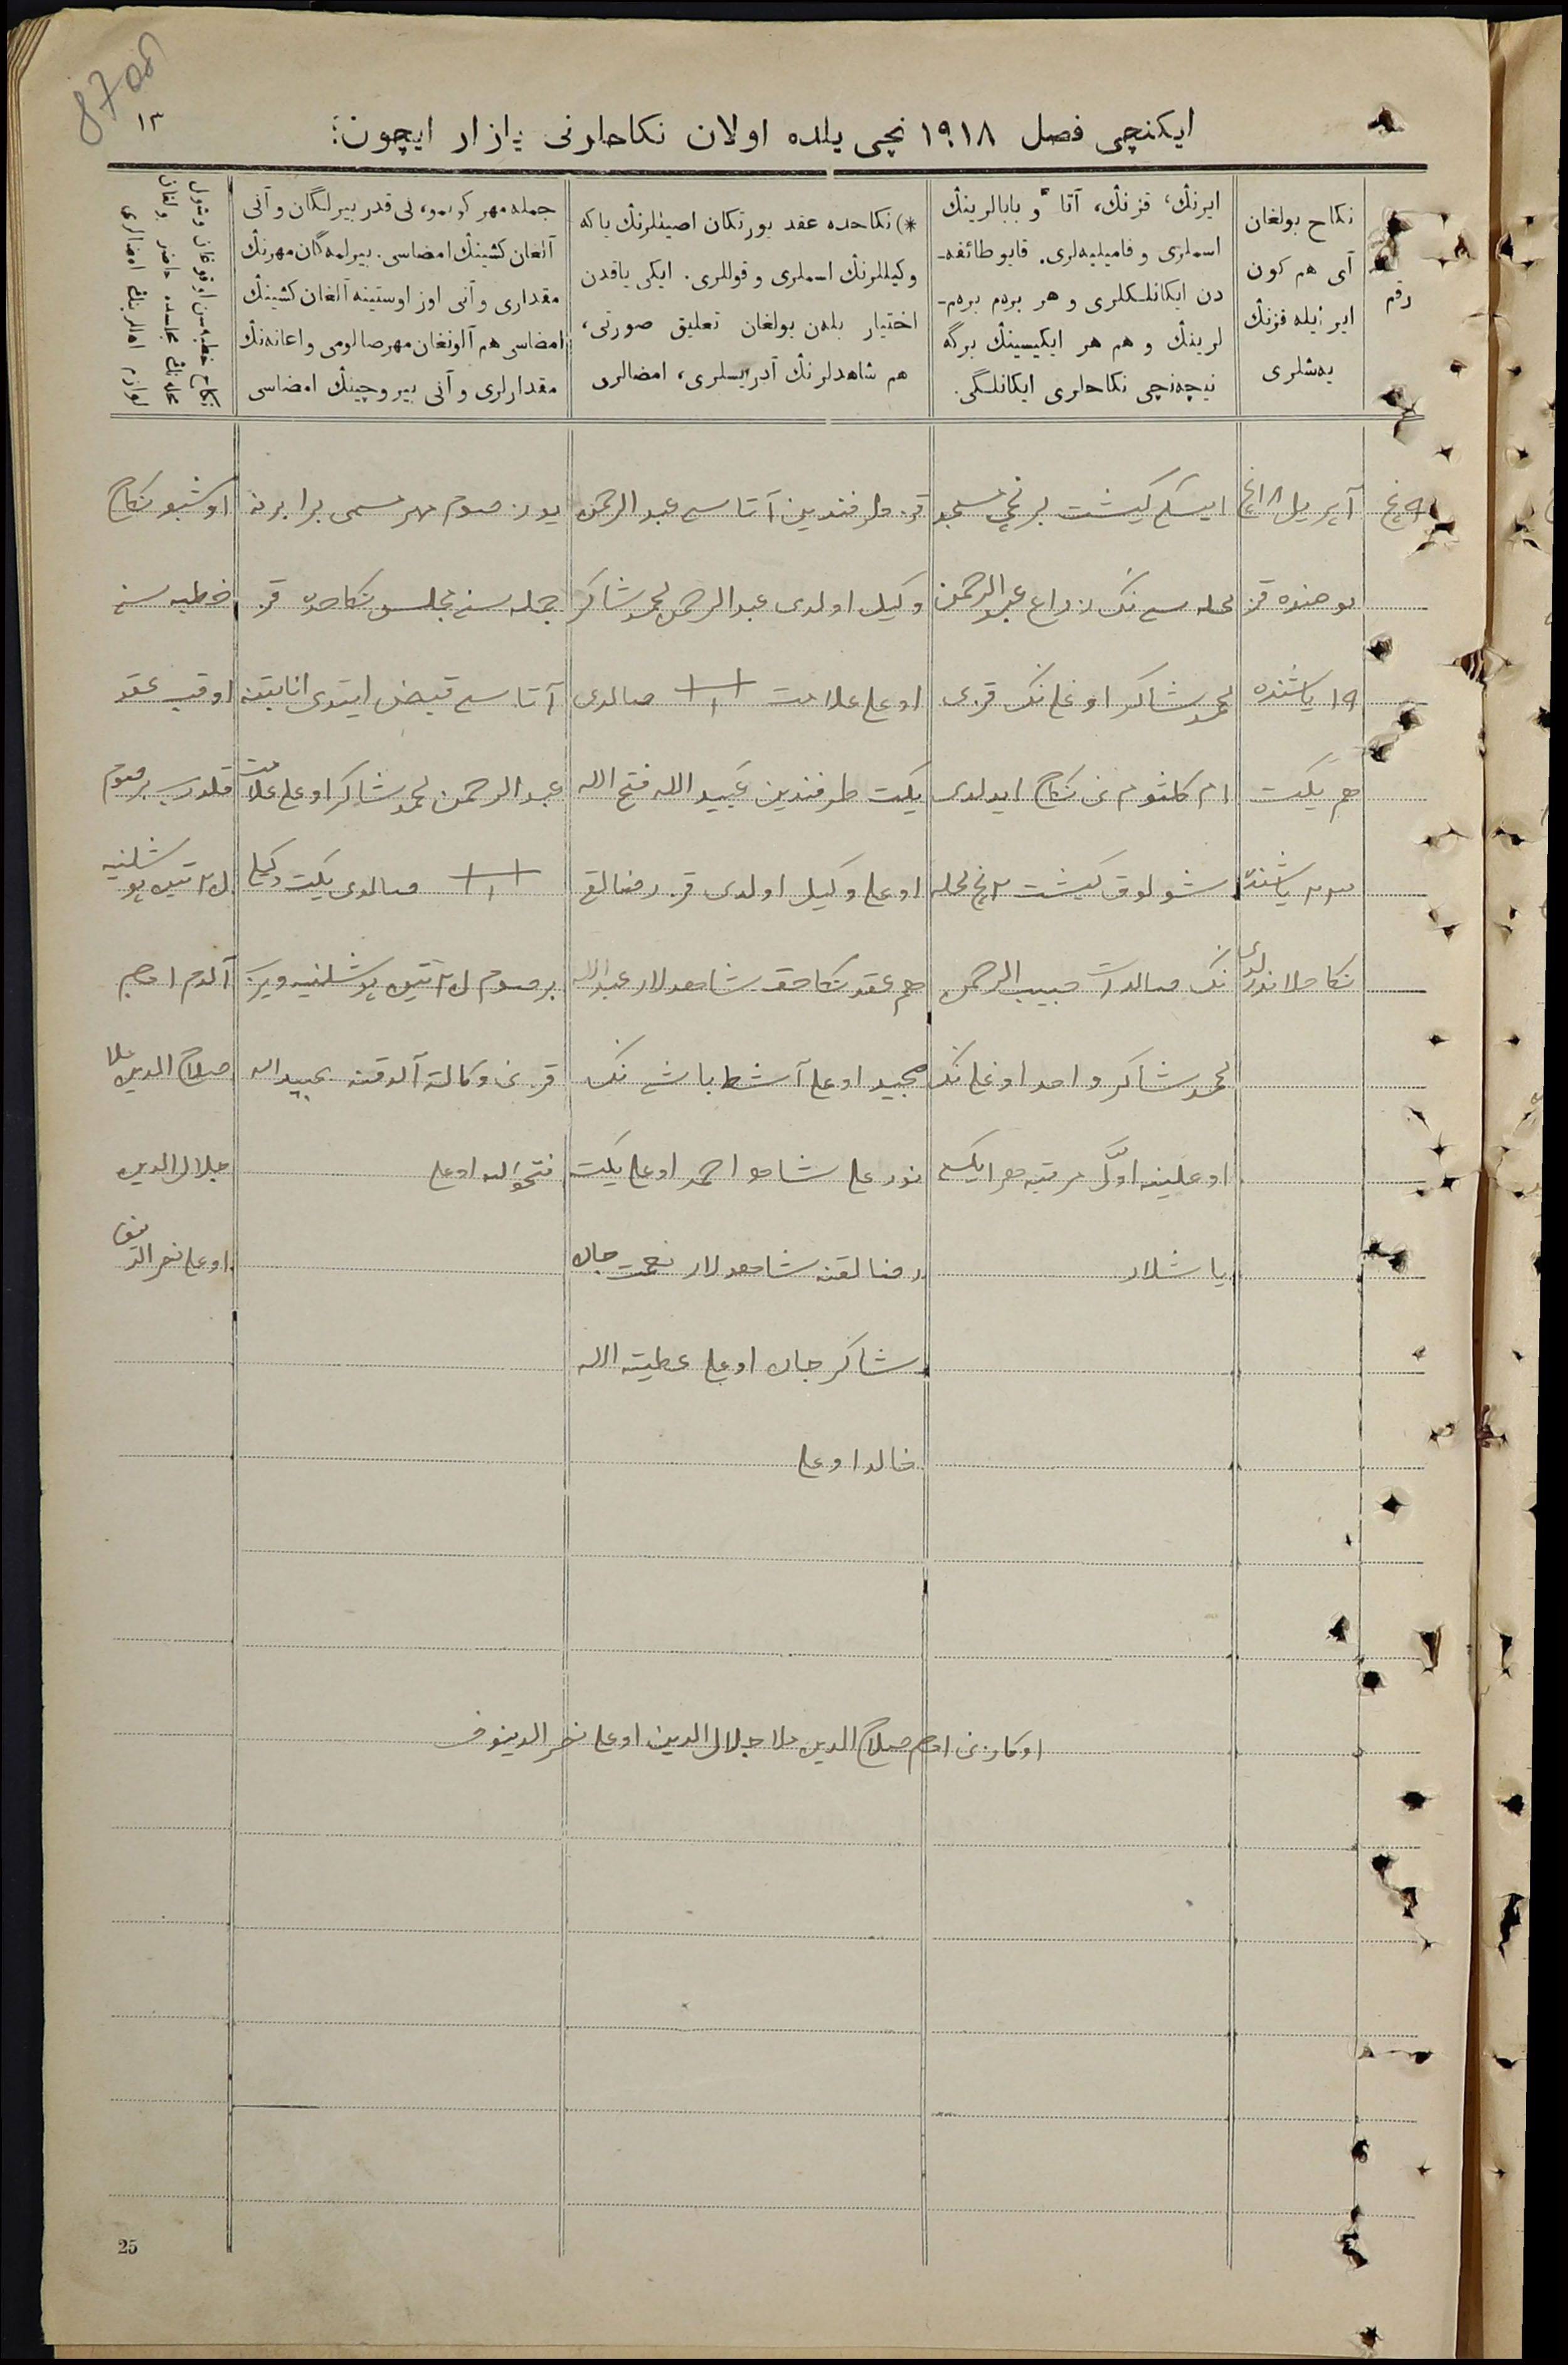 8708
١٣
ایکنچی فصل ١٩١٨ نچی یلده اولان نکاحلرنی یازار ایچون:
رقم
نکاح بولغان
آی هم کون
ایر ایله قزنڭ
یەشلری
ایرنڭ، قزنڭ، آتا و بابالرینڭ
اسملری و فامیلیەلری. قایو طائفه-
دن ایکانلکلری و هر برەم برەم-
لرینڭ و هم هر ایکیسینڭ برگه
نیچەنچی نکاحلری ایکانلگی.
*) نکاحده عقد یورتکان اصیللرنڭ یاکه
وکیللرنڭ اسملری و قوللری. ایکی یاقدن
اختیار بلەن بولغان تعلیق صورتی،
هم شاهدلرنڭ آدریسلری، امضالری
جمله مهر کوبمو، نی قدر بیرلگان و آنی
آلغان کشینڭ امضاسی. بیرلمەگان مهرنڭ
مقداری و آنی اوز اوستینه آلغان کشینڭ
امضاسی هم آلونغان مهر صالومی و اعانەنڭ
مقدارلری و آنی بیروچینڭ امضاسی
نکاح خطبەسن اوقوغان وشول
لوازم امضالری
٩ نچ
آپریل ١٨ نچی
بو هنده قز
١٩ یاشنده
هم یکت
٢٣ یاشنده
نکاحلاندی
ایسکی کیشت برنچی مسجد
محله سی نک زراع عبدالرحمن
محمدشاکر اوغلی نک قزی
ام کلثوم نی نکاح ایدلدی
شولوق کیشت ٢ نچ محله
نک صالدات حبیب الرحمن
محمدشاکر واحد اوغلی نک
اوغلینه اوّل مرتبه هر ایکسی
یاشلار
قز طرفندین آتاسی عبدالرحمن
وکیل اولدی عبدالرحمن محمدشاکر
اوغلی علامت صالدی
یکت طرفندین عبیدالله فتح الله
اوغلی وکیل اولدی قز رضالقی
هم عقد نکاحقه شاهدلار عبدالله
مجید اوغلی آشطاباشی نک
نورعلی شاه احمد اوغلی یکت
رضالقنه شاهدلار نعمت جان
شاکرجان اوغلی عطیة الله
خالد اوغلی
یوز صوم مهر مسمی برابرنه
جمله سنی مجلس نکاحده قز
آتاسی قبض ایتدی اثابتنه
عبدالرحمن محمدشاکر اوغلی علامت
صالدی یکت وکیلی
قزنی وکالة آلدقنه عبیدالله
فتح الله اوغلی
اوشبو نکاح
خطبه سنی
اوقب عقد
قلدرب برصوم
آلدم امام
صلاح الدین ملا
جلال الدین
اوغلی نصرالدینف
اوکازنی امام صلاح الدین ملا جلال الدین اوغلی نصرالدینوف
25